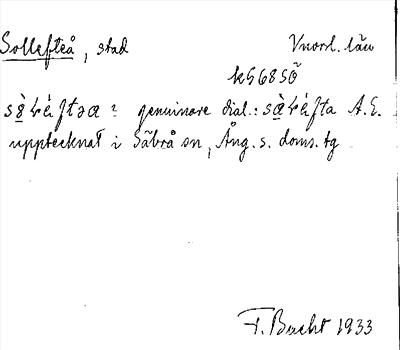 Sollefteå, stad Vnorrl. län
kh6850
sò̱ɽéftəa : genuinare dial.: sà̱ɽéfta A.E.
upptecknat i Säbrå sn, Ång. s. doms. tg
F. Bucht 1933